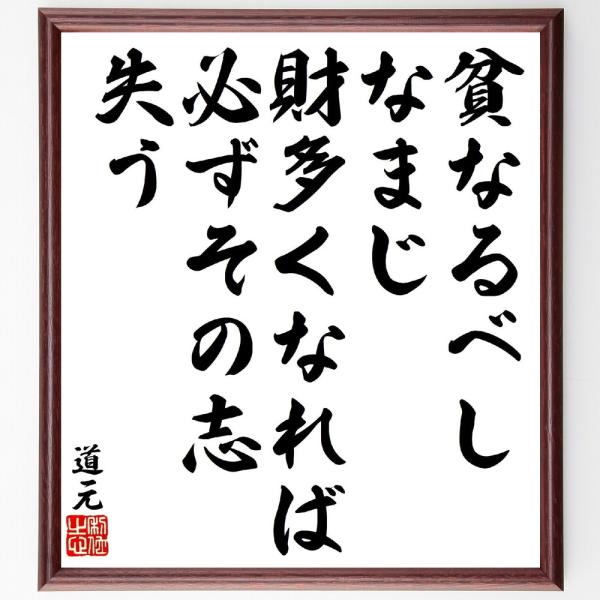 貧なるべし
なまじ
財多くなれば
必ずその志
失う
道元